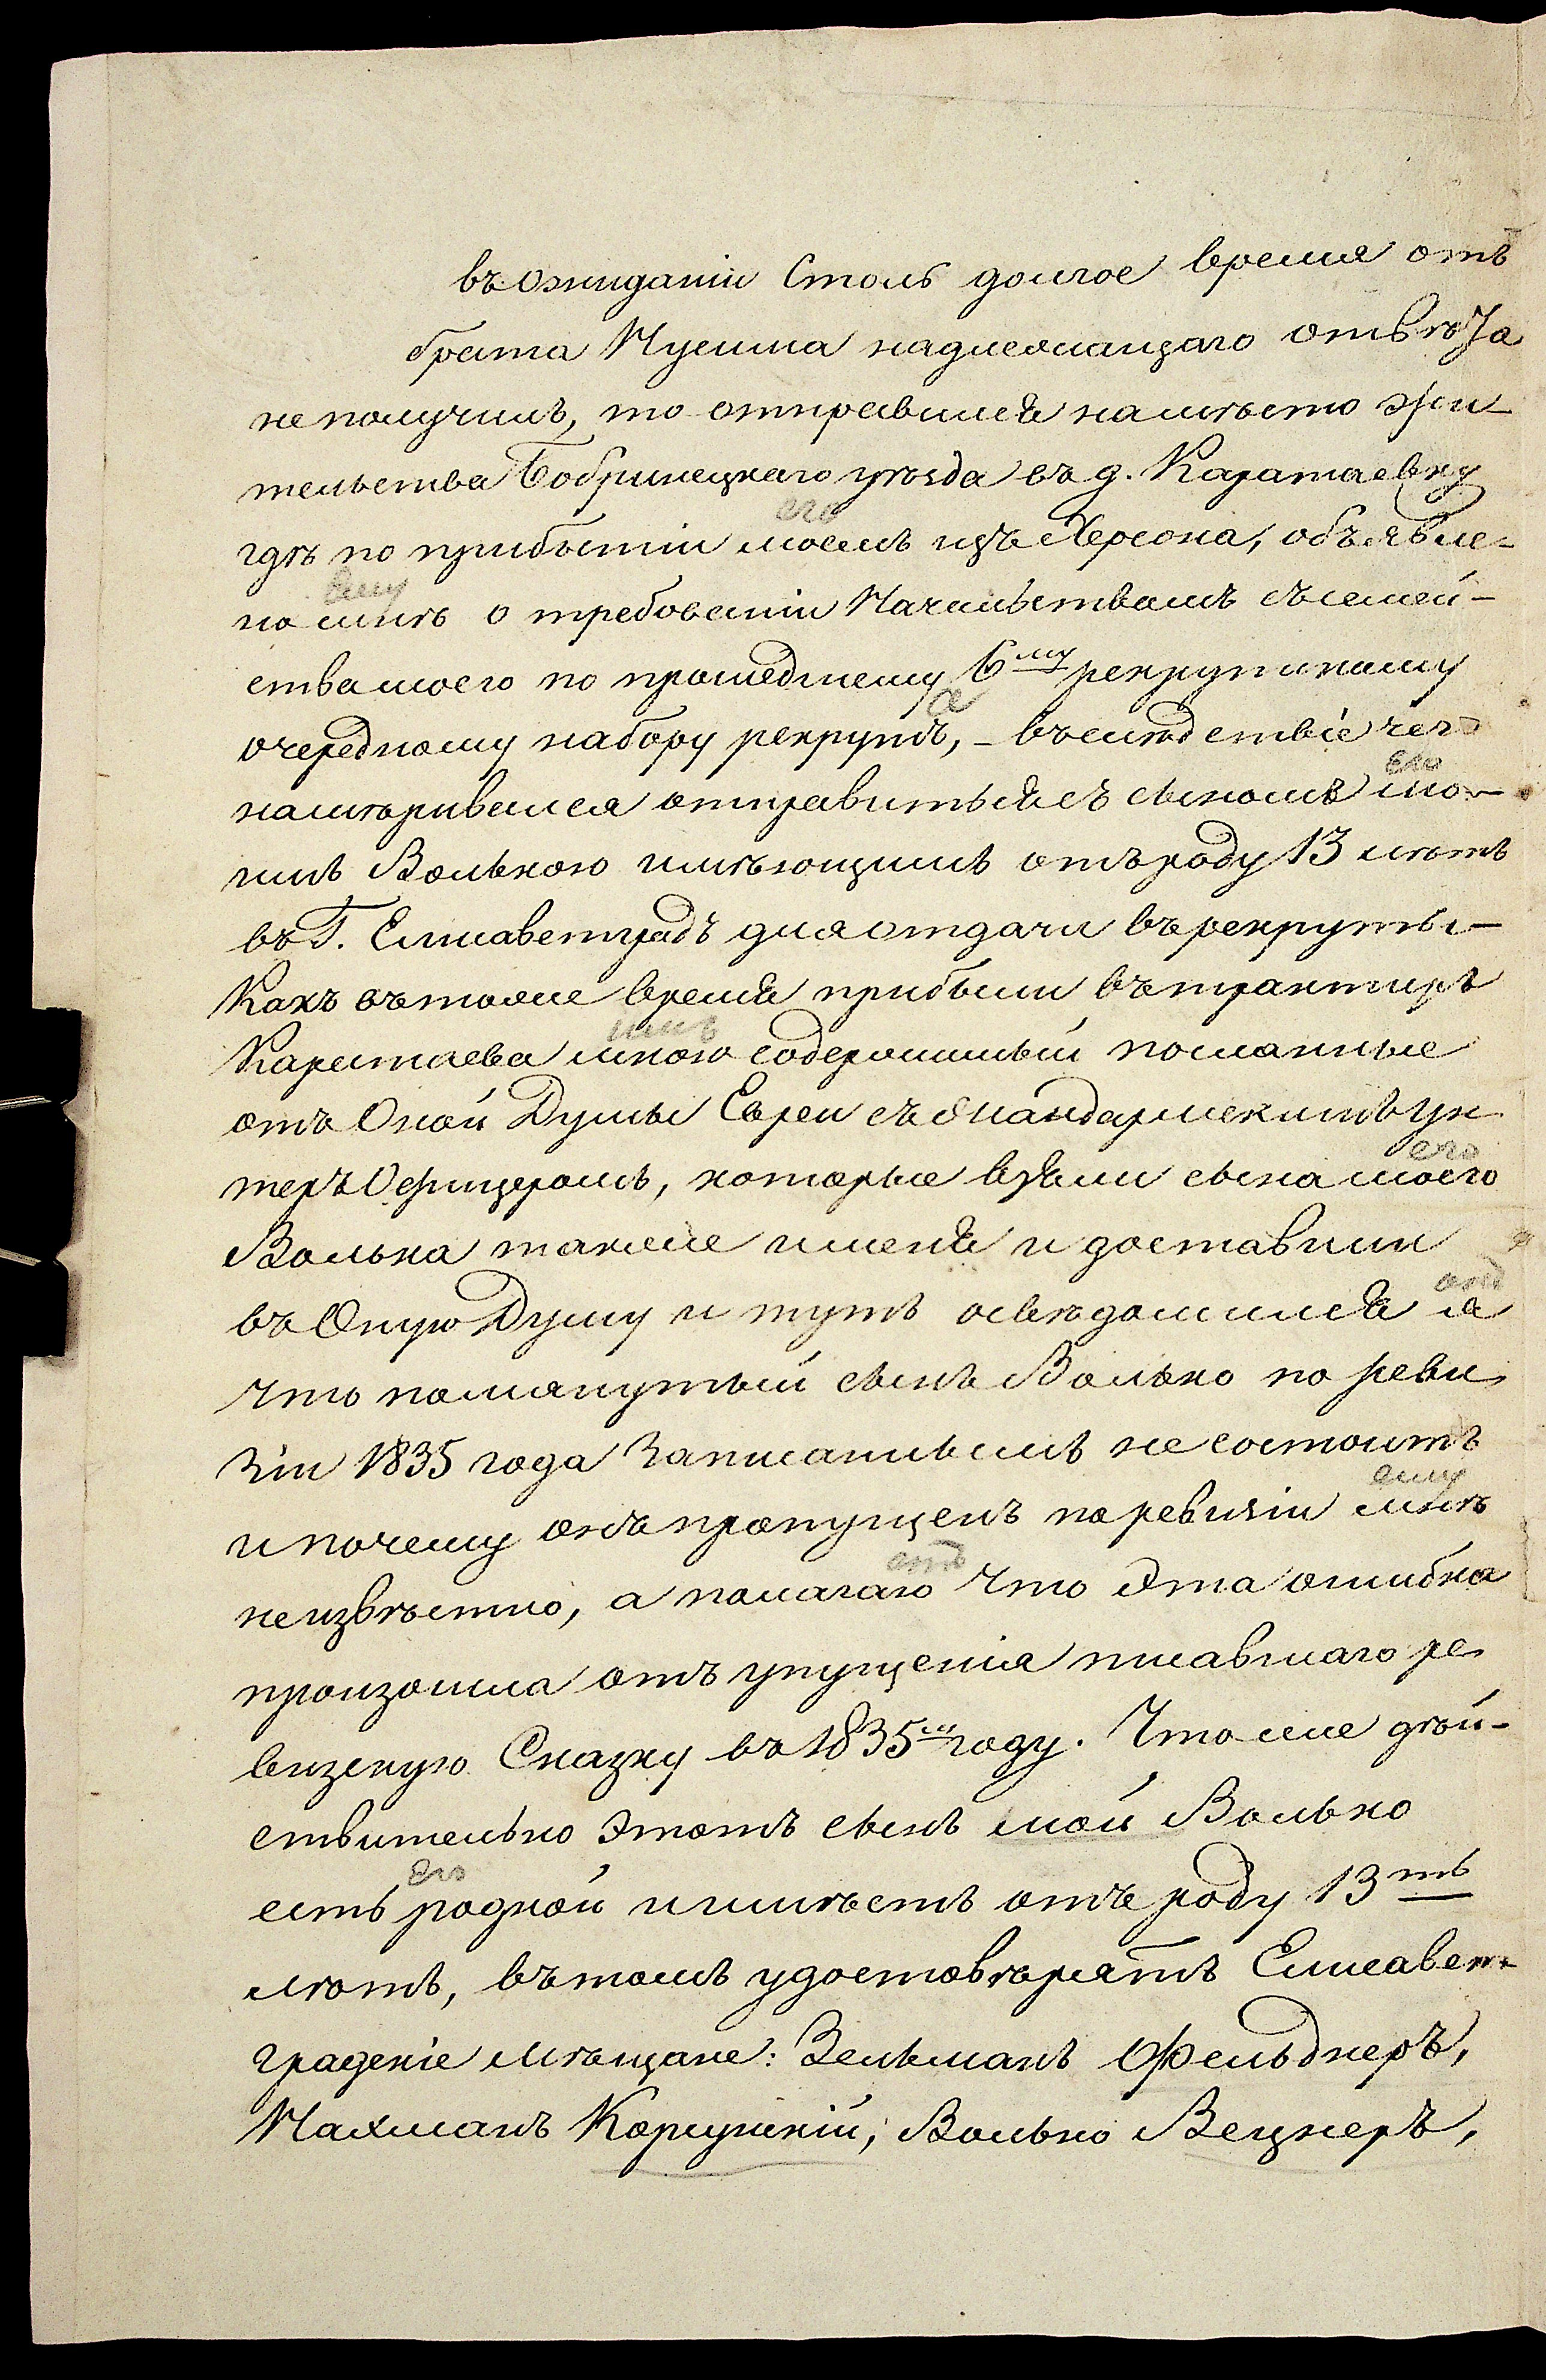 въ ожиданіи Столь долгое время отъ
брата Мусиша надлежащаго отвѣта
не получилъ, то отправился на мѣсто жи-
тельства Бобринецкаго уѣзда въ д. Каратаевку
его
гдѣ по прибытіи моемъ изъ Херсона, объявле-
ему
но мнѣ о требованіи Начальствомъ съ семей-
ства моего по прошедшему 6му рекрутскому
а
очередному набору рекрутъ, - въ слѣдствіе чего
его
намѣривался отправиться съ сыномъ мо-
имъ Волькою имѣющимъ отъ роду 13 лѣтъ
въ Г. Елисаветградъ для отдачи въ рекруты -
Какъ въ тоже время прибыли въ трактиръ
имъ
Каратаева мною содержимый посланные
отъ Оной Думы Евреи съ Жандармскимъ ун
теръ Офицеромъ, которые взяли сына моего
его
Волька также и меня и доставили
онъ
въ Оную Думу и тутъ освѣдомился я
что помянутый сынъ Волько по реви
зіи 1835 года Записаннымъ не состоитъ
ему
и почему онъ пропущенъ по ревизіи мнѣ
онъ
неизвѣстно, а полагаю что Эта ошибка
произошла отъ упущенія писавшаго ре
визскую Сказку въ 1835м году. Что же дѣй-
ствительно Этотъ сынъ мой Волько
его
есть родной и имѣетъ отъ роду 13ть
лѣтъ, въ томъ удостовѣрятъ Елисавет-
градскіе мѣщане: Зельманъ Фельднеръ,
Нахманъ Корсунскій, Волько Вецнеръ,